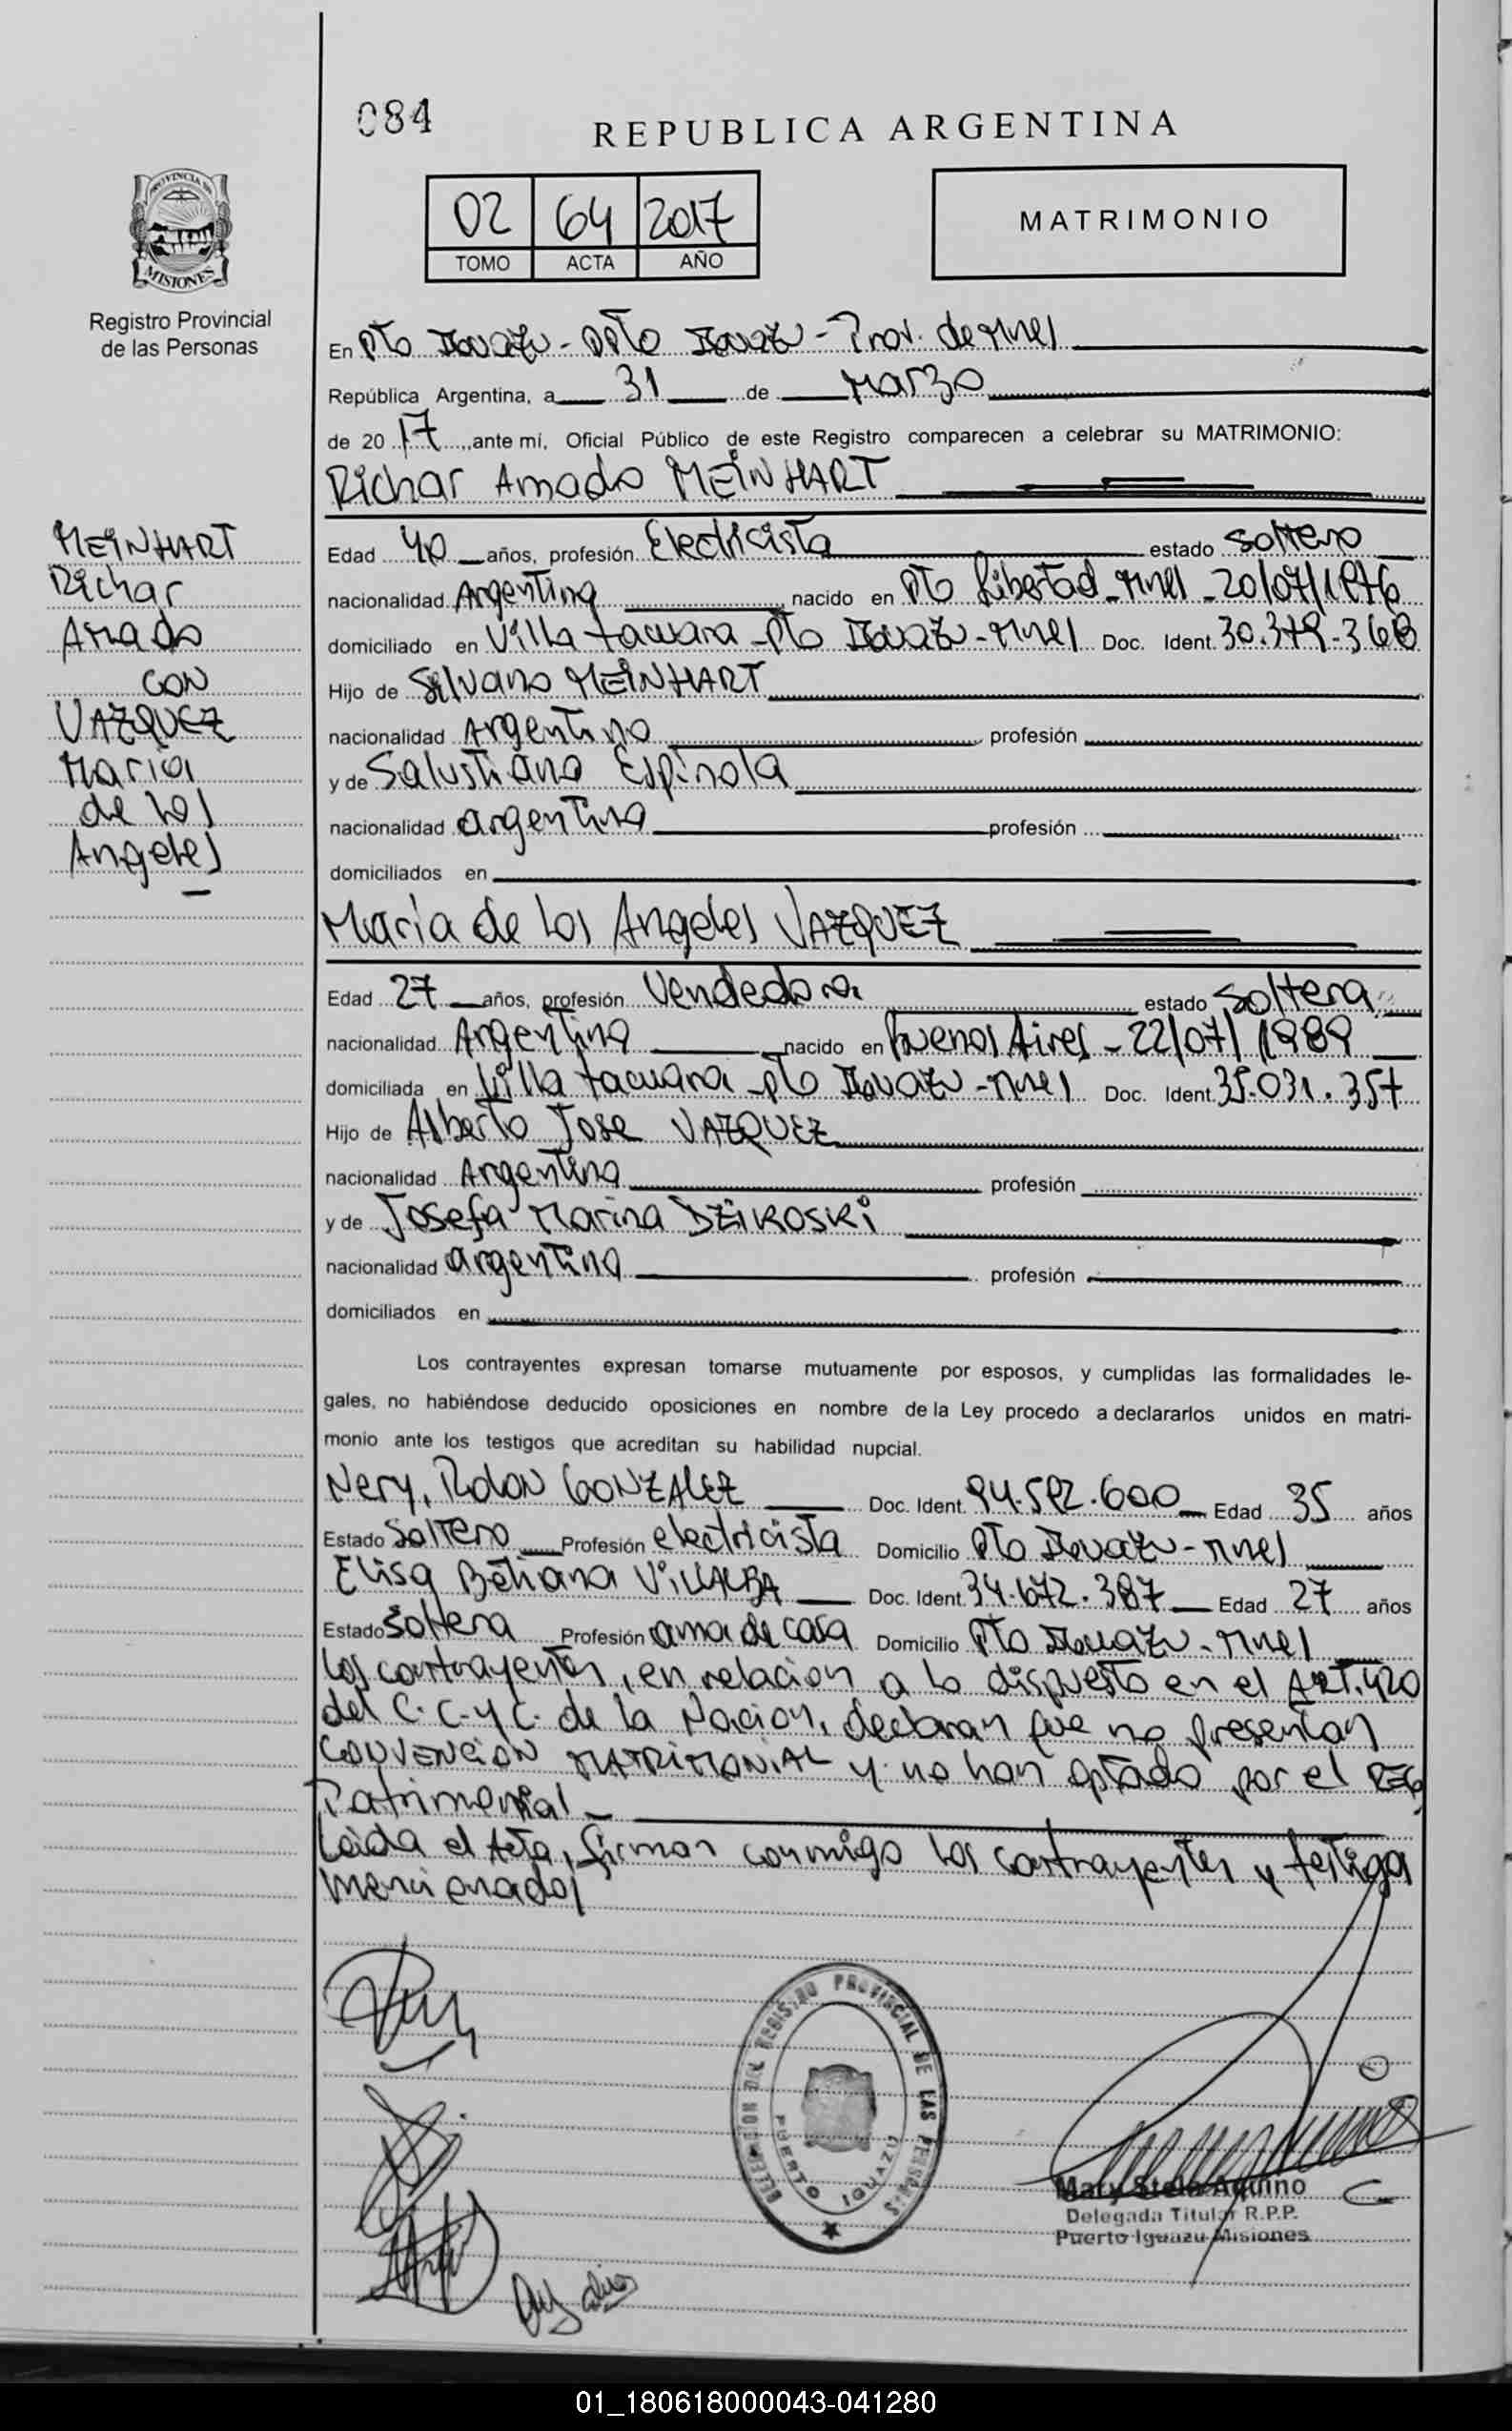 084
REPUBLICA ARGENTINA
PROVINCIA DE
MISIONES
Registro Provincial
de las Personas
02 64 2017
TOMO ACTA AÑO
MATRIMONIO
En Pto Iguazu - Dpto Iguazu - Prov. de Mnes
República Argentina, a 31 de Marzo
de 20 17 ante mí, Oficial Público de este Registro comparecen a celebrar su MATRIMONIO:
Richar Amado MEINHART
MEINHART
Richar
Amado
CON
VAZQUEZ
Maria
de los
Angeles
Edad 40 años, profesión Electricista estado soltero
nacionalidad Argentina nacido en Pto Libertad - Mnes - 20/07/1976
domiciliado en Villa tacuara - Pto Iguazu - Mnes Doc. Ident. 30.379.368
Hijo de Silvano MEINHART
nacionalidad Argentino profesión
y de Salustiana Espinola
nacionalidad argentina profesión
domiciliados en
Maria de los Angeles VAZQUEZ
Edad 27 años, profesión Vendedora estado soltera
nacionalidad Argentina nacido en Buenos Aires - 22/07/1989
domiciliada en Villa tacuara - Pto Iguazu - Mnes Doc. Ident. 35.031.357
Hijo de Alberto Jose VAZQUEZ
nacionalidad Argentino profesión
y de Josefa Marina DZIKOSKI
nacionalidad argentina profesión
domiciliados en
Los contrayentes expresan tomarse mutuamente por esposos, y cumplidas las formalidades le-
gales, no habiéndose deducido oposiciones en nombre de la Ley procedo a declararlos unidos en matri-
monio ante los testigos que acreditan su habilidad nupcial.
Nery, Rolon GONZALEZ Doc. Ident. 94.592.600 Edad 35 años
Estado soltero Profesión electricista Domicilio Pto Iguazu - Mnes
Elisa Betiana VILLALBA Doc. Ident. 34.672.387 Edad 27 años
Estado soltera Profesión ama de casa Domicilio Pto Iguazu - Mnes
Los contrayentes, en relacion a lo dispuesto en el ART. 420
del C.C. y C. de la Nacion, declaran que no presentan
CONVENCION MATRIMONIAL y no han optado por el REG
Patrimonial
Leida el Acta, firman conmigo los contrayentes y testigo
mencionados
DELEGACION DEL REGISTRO PROVINCIAL DE LAS PERSONAS
PUERTO IGUAZU
Mary Stela Aquino
Delegada Titular R.P.P.
Puerto Iguazu-Misiones
01_180618000043-041280